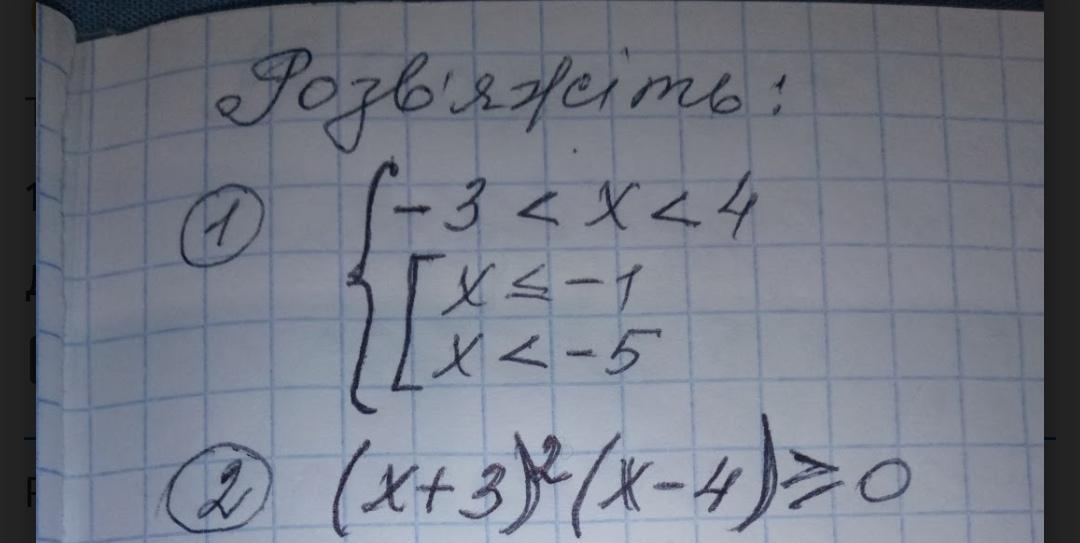 Розв'яжіть:
1 { -3 < x < 4
[ x ≤ -1
x < -5
2 (x+3)²(x-4) ≥ 0